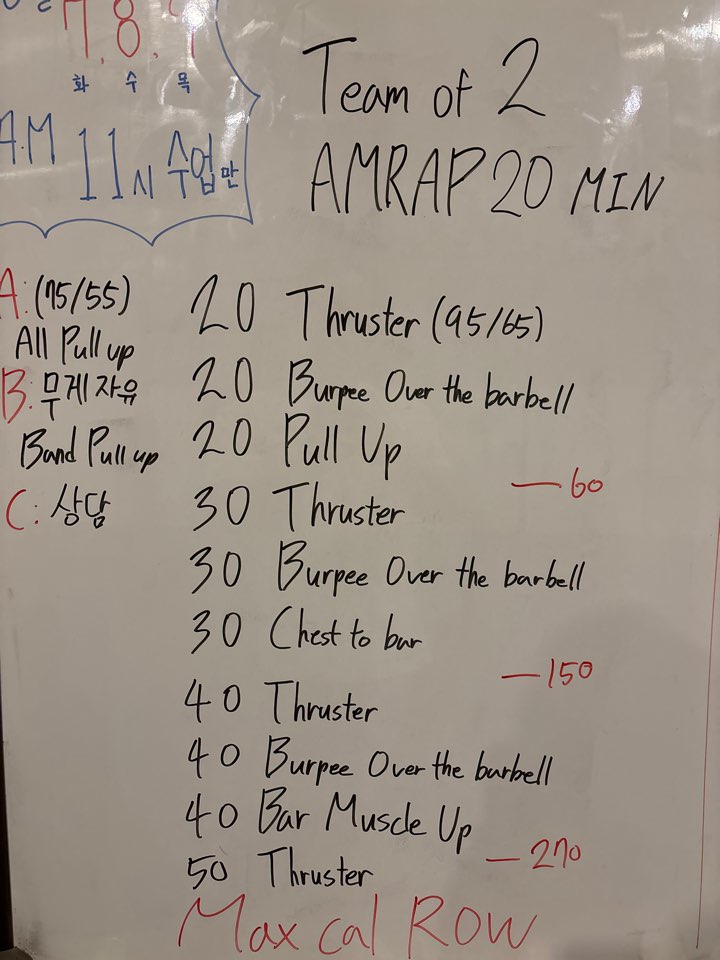 7, 8, 9
화 수 목
AM 11시 수업만
Team of 2
AMRAP 20 MIN
A: (75/55)
All Pull up
B: 무게 자유
Band Pull up
C: 상담
20 Thruster (95/65)
20 Burpee Over the barbell
20 Pull Up
— 60
30 Thruster
30 Burpee Over the barbell
30 Chest to bar
— 150
40 Thruster
40 Burpee Over the barbell
40 Bar Muscle Up
— 270
50 Thruster
Max cal ROW